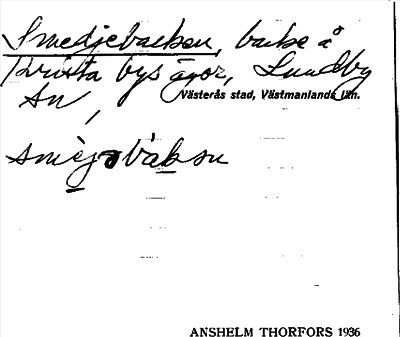 Smedjebacken, backe å
Kristta bys ägor, Lundby
sn, Västerås stad, Västmanlands län.
smèjəbàkən
ANSHELM THORFORS 1936